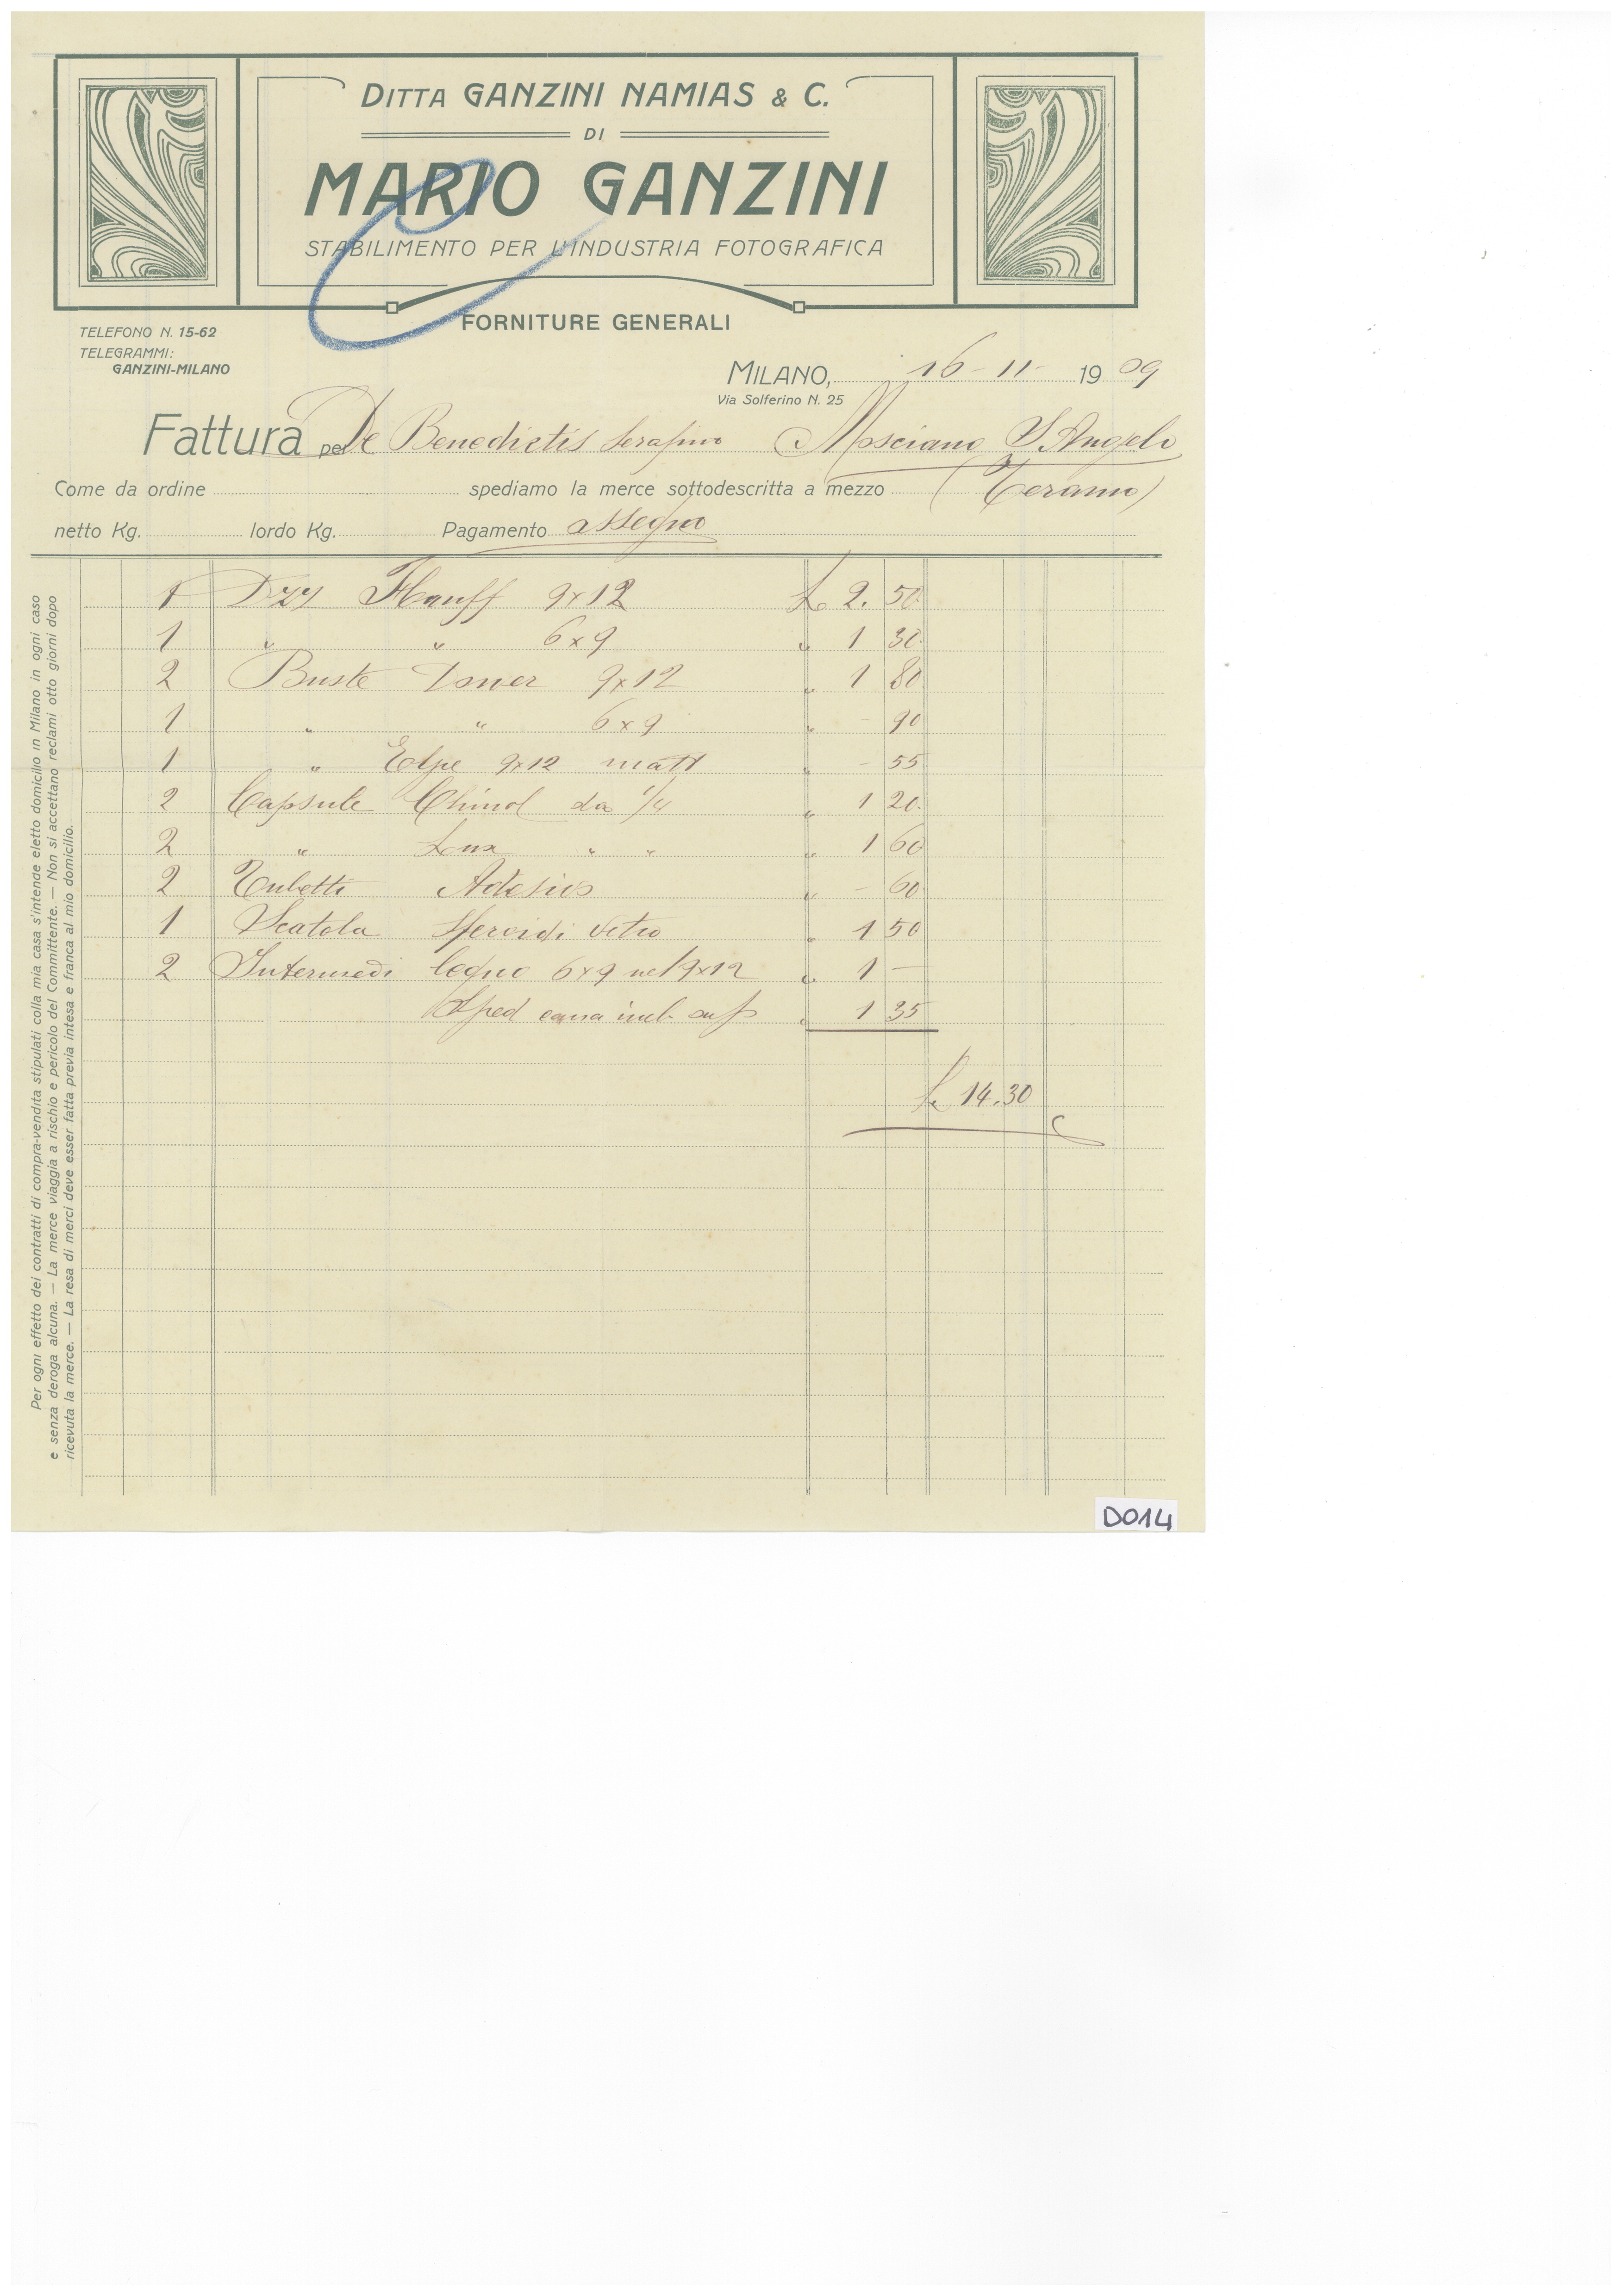 DITTA GANZINI NAMIAS & C.
DI
MARIO GANZINI
STABILIMENTO PER L'INDUSTRIA FOTOGRAFICA
FORNITURE GENERALI
TELEFONO N. 15-62
TELEGRAMMI:
GANZINI-MILANO
MILANO, 16-11- 1909
Via Solferino N. 25
Fattura per De Benedictis Serafino Mosciano S. Angelo
Come da ordine spediamo la merce sottodescritta a mezzo (Teramo)
netto Kg. lordo Kg. Pagamento assegno
1 Dzz Hauff 9x12 L. 2.50
1 " " 6x9 " 1 30
2 Buste 9x12 " 1 80
1 " " 6x9 " - 90
1 " 9x12 matt " - 55
2 Capsule da 1/4 " 1 20
2 " Lux " " " 1 60
2 Tubetti " - 60
1 Scatola vetro " 1 50
2 Intermedi legno 6x9 nel 9x12 " 1 -
Sped " 1 35
L. 14.30
Per ogni effetto dei contratti di compra-vendita stipulati colla mia casa s'intende eletto domicilio in Milano in ogni caso
e senza deroga alcuna. — La merce viaggia a rischio e pericolo del Committente. — Non si accettano reclami otto giorni dopo
ricevuta la merce. — La resa di merci deve esser fatta previa intesa e franca al mio domicilio.
D014